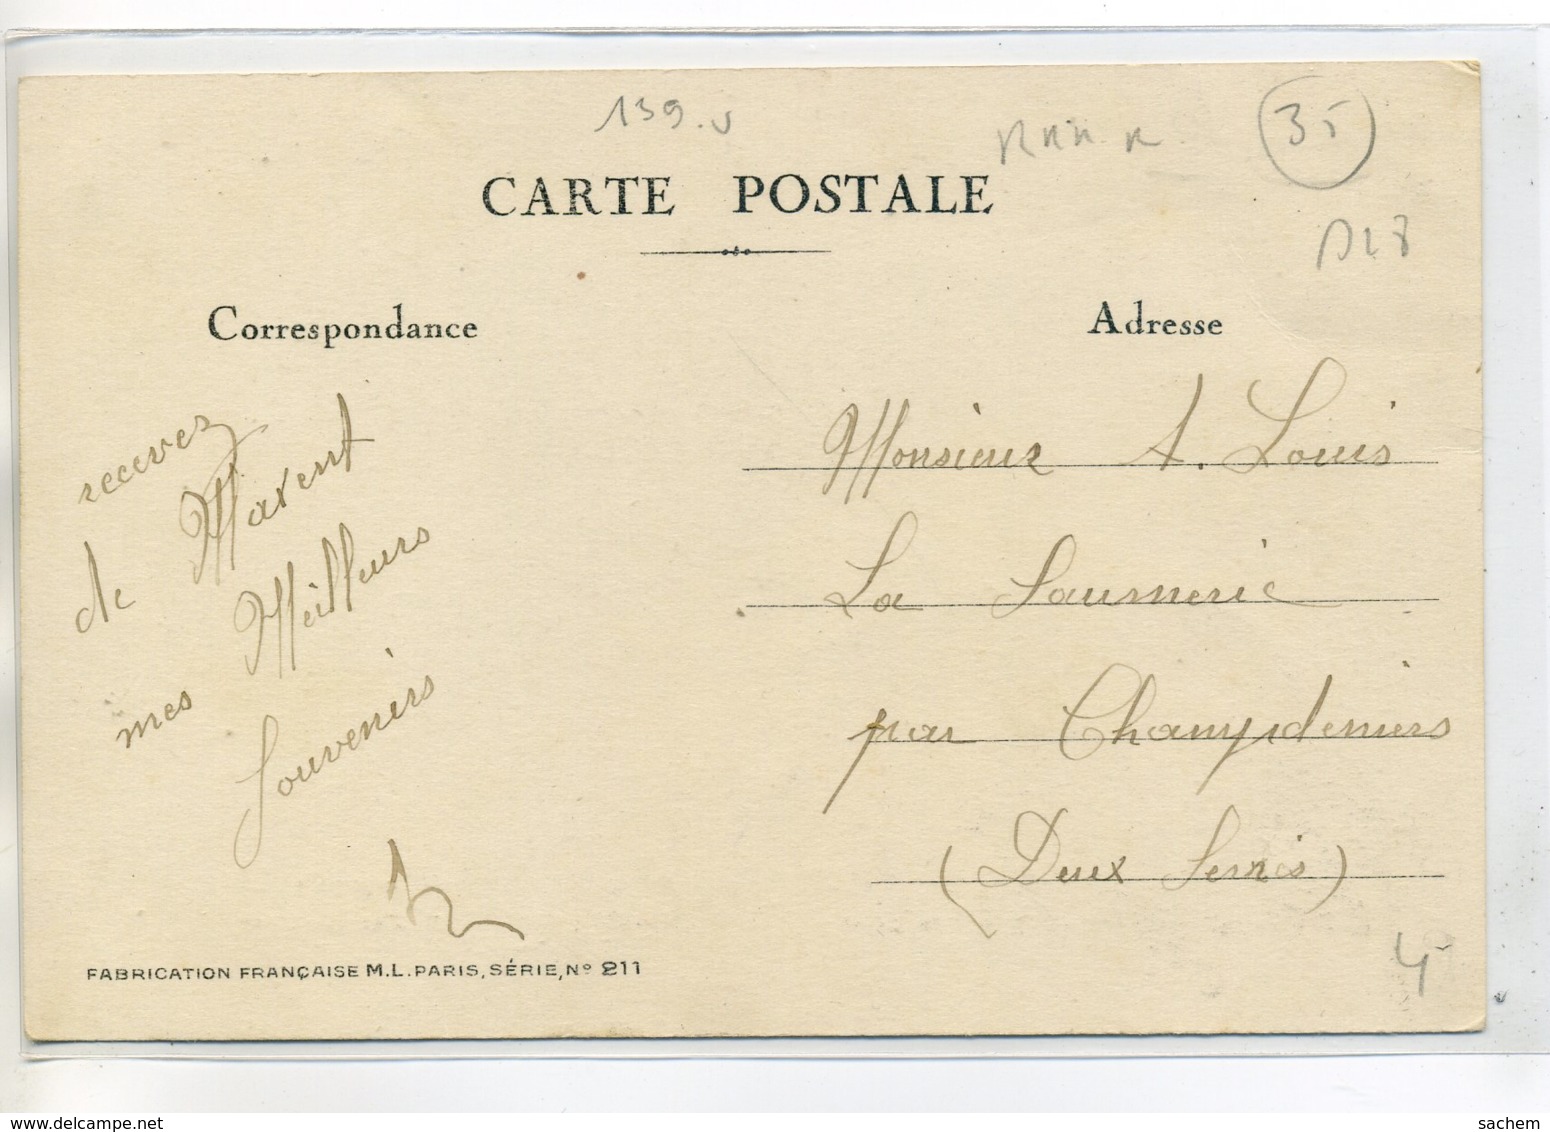 139.v
35
CARTE POSTALE
Correspondance
Adresse
recevez
de Maxent
mes Meilleurs
Souvenirs
Monsieur A. Louis
La Saumerie
par Champdeniers
(Deux Sevres)
4-
FABRICATION FRANÇAISE M.L. PARIS, SÉRIE, Nº 211
www.delcampe.net
sachem